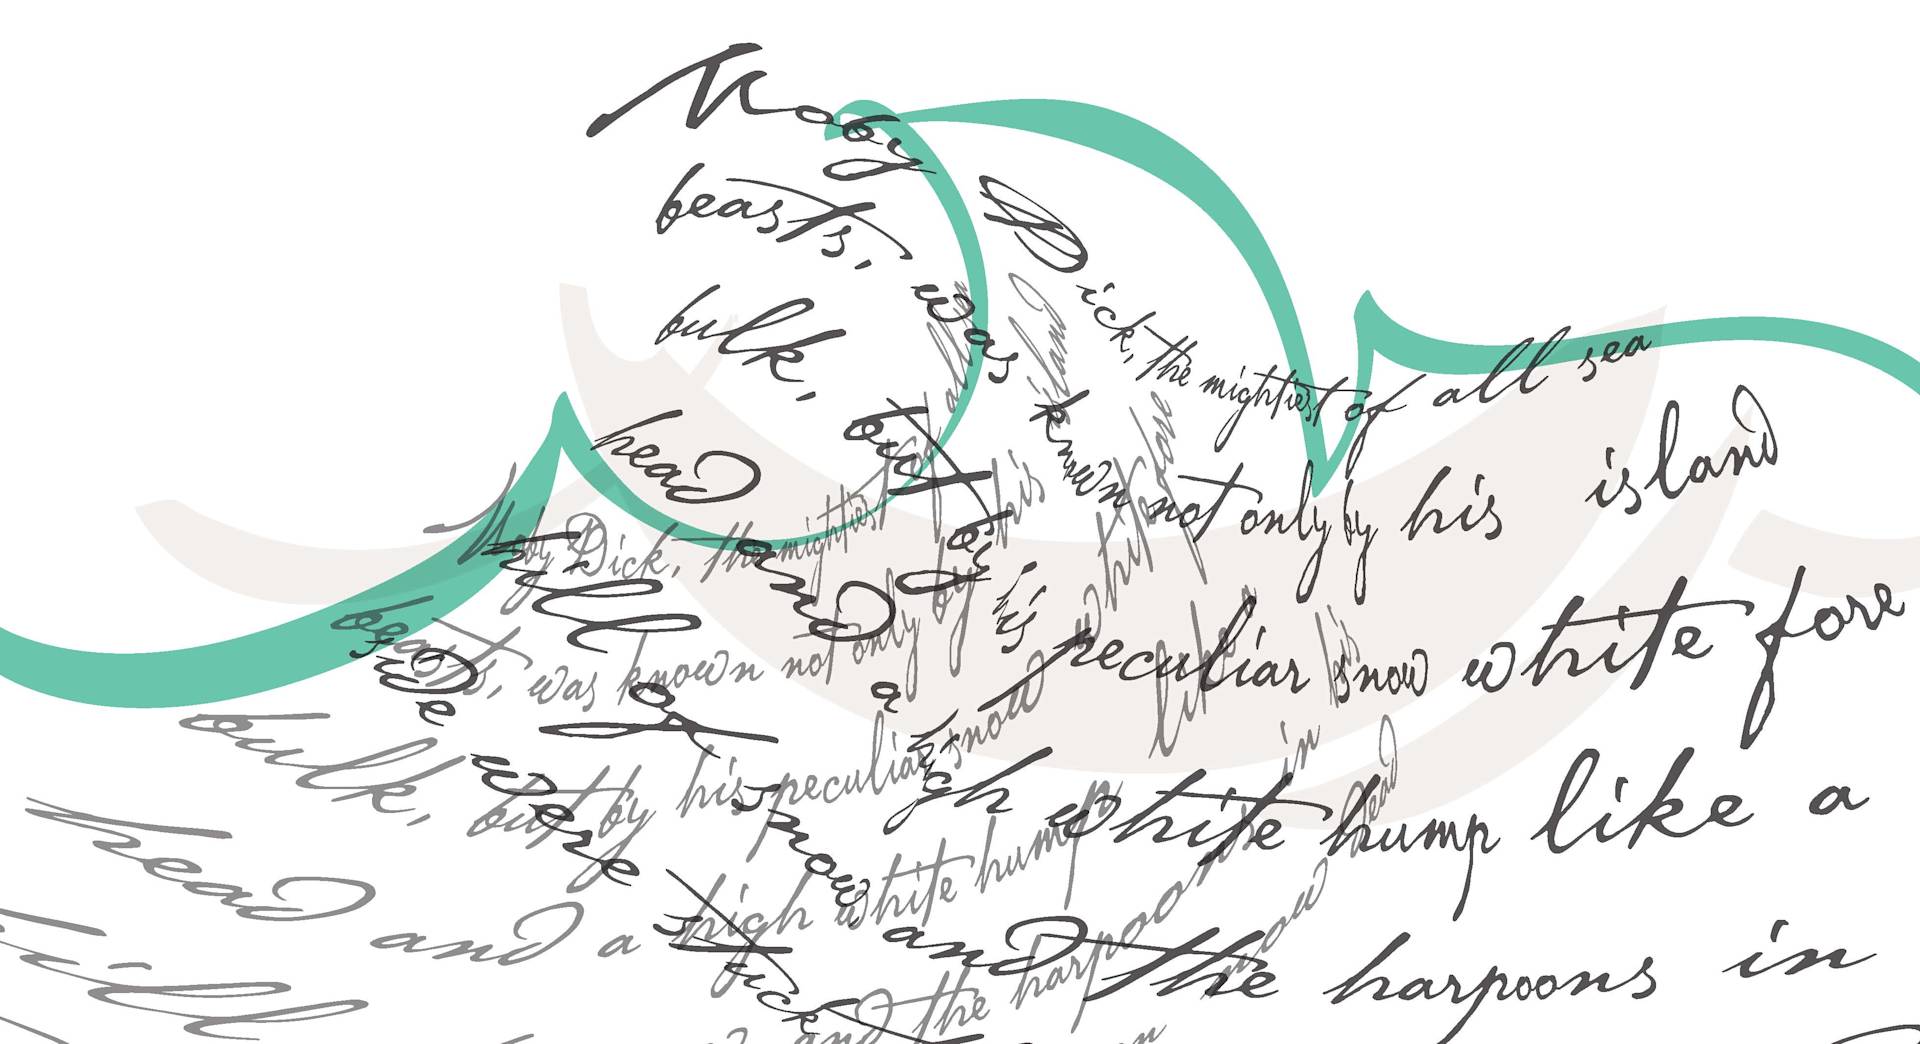 Moby Dick, the mightiest of all sea
beasts, was known not only by his island
bulk, but by his peculiar snow white fore
head and a high white hump like a
hill of snow and the harpoons in
his side were stuck
Moby Dick, the mightiest of all sea
beasts, was known not only by his island
bulk, but by his peculiar snow white fore
head and a high white hump like a
hill of snow and the harpoons in his
head